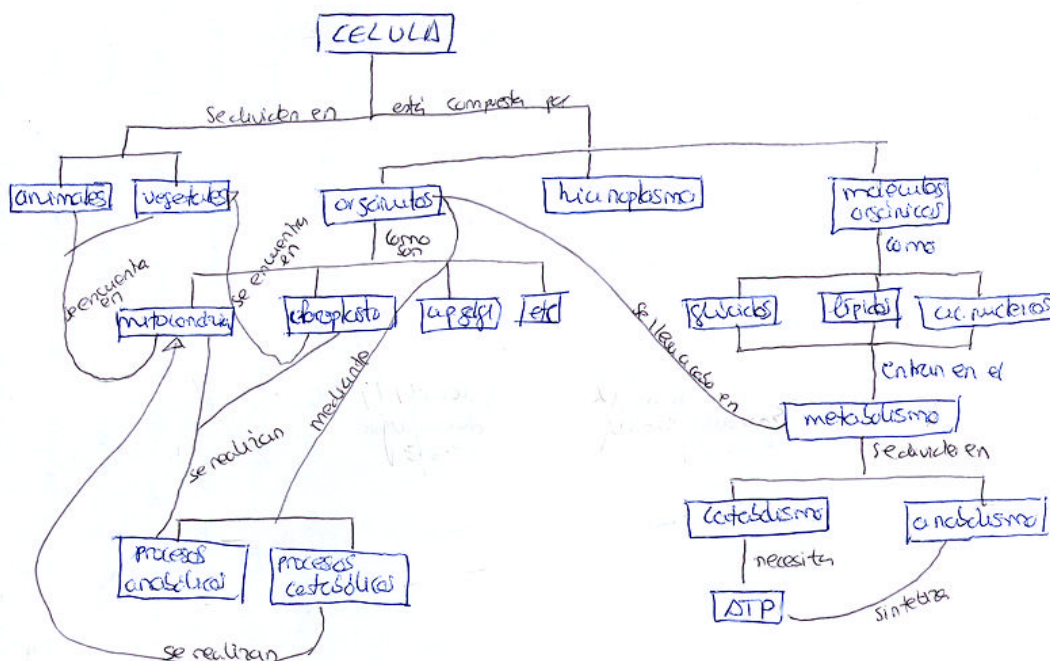 CELULA
Se dividen en
está compuesta por
animales
vegetales
orgánulos
hialoplasma
moléculas
orgánicas
como
son
como
se encuentra
en
se encuentra
en
mitocondria
cloroplasto
ap golgi
etc
glúcidos
lípidos
ac. nucleicos
se llevan a cabo en
mediante
entran en el
metabolismo
se realizan
se divide en
catabolismo
anabolismo
procesos
anabólicos
procesos
catabólicos
necesita
ATP
sintetiza
se realizan